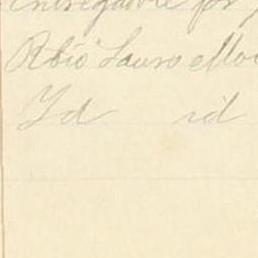 entregadole por
Rbío Lauro Mo
Id id